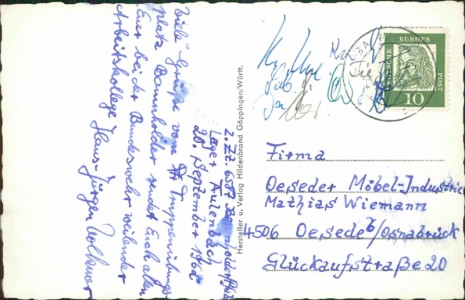 Viele Grüße vom Truppenübungs-
platz Baumholder sendet Euch allen
Euer bei der Bundeswehr weilender
Arbeitskollege Hans-Jürgen Volkmer
2. Zt. 6587 Baumholder
Lager Aulenbach
20. September 196
Hersteller u. Verlag Hildenbrand Göppingen/Württ.
DEUTSCHE
BUNDES
POST
10
Firma
Oeseder Möbel-Industrie
Mathias Wiemann
4506 Oesede b/Osnabrück
Glückaufstraße 20